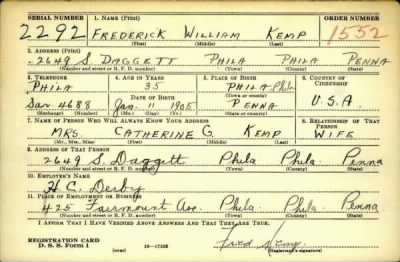 SERIAL NUMBER 1. NAME (Print) ORDER NUMBER
2292 FREDERICK WILLIAM KEMP 1552
(First) (Middle) (Last)
2. ADDRESS (Print)
2649 S DAGGETT PHILA PHILA PENNA
(Number and street or R. F. D. number) (Town) (County) (State)
3. TELEPHONE 4. AGE IN YEARS 5. PLACE OF BIRTH 6. COUNTRY OF CITIZENSHIP
PHILA 35 PHILA Phila
DATE OF BIRTH (Town) (County)
Sar 4688 Jan. 11 1905 PENNA U.S.A.
(Exchange) (Number) (Mo.) (Day) (Yr.) (State or country)
7. NAME OF PERSON WHO WILL ALWAYS KNOW YOUR ADDRESS 8. RELATIONSHIP OF THAT PERSON
MRS. CATHERINE G. KEMP WIFE
(Mr., Mrs., Miss) (First) (Middle) (Last)
9. ADDRESS OF THAT PERSON
2649 S. Daggett Phila Phila. Penna
(Number and street or R. F. D. number) (Town) (County) (State)
10. EMPLOYER'S NAME
H C. Derby
11. PLACE OF EMPLOYMENT OR BUSINESS
425 Fairmount Ave. Phila. Phila. Penna
(Number and street or R. F. D. number) (Town) (County) (State)
I AFFIRM THAT I HAVE VERIFIED ABOVE ANSWERS AND THAT THEY ARE TRUE.
REGISTRATION CARD
D. S. S. Form 1 (over) 16—17105 Fred Kemp
(Registrant's signature)